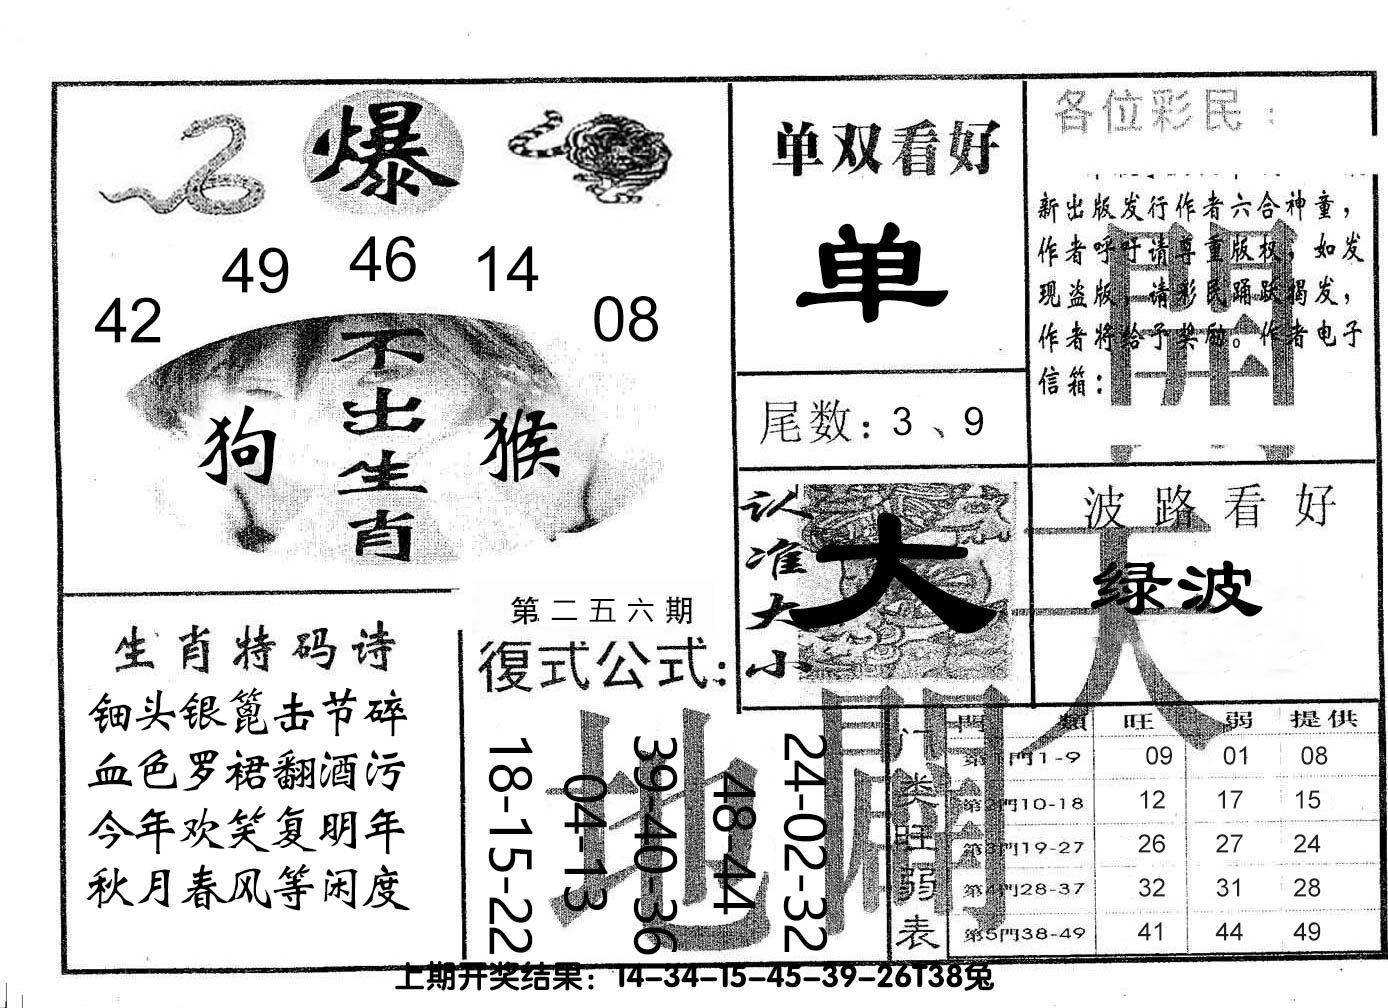 爆
42 49 46 14 08
不出生肖
狗
猴
单双看好
单
尾数：3、9
各位彩民：
新出版发行作者六合神童，
作者呼吁请尊重版权，如发
现盗版，请彩民踊跃揭发，
作者将给予奖励。作者电子
信箱：
開
认准大小
大
波路看好
绿波
天
生肖特码诗
钿头银篦击节碎
血色罗裙翻酒污
今年欢笑复明年
秋月春风等闲度
第二五六期
復式公式：
18-15-22
04-13
39-40-36
48-44
24-02-32
地
门类旺弱表
門類 旺 弱 提供
第1門1-9 09 01 08
第2門10-18 12 17 15
第3門19-27 26 27 24
第4門28-37 32 31 28
第5門38-49 41 44 49
上期开奖结果：14-34-15-45-39-26T38兔